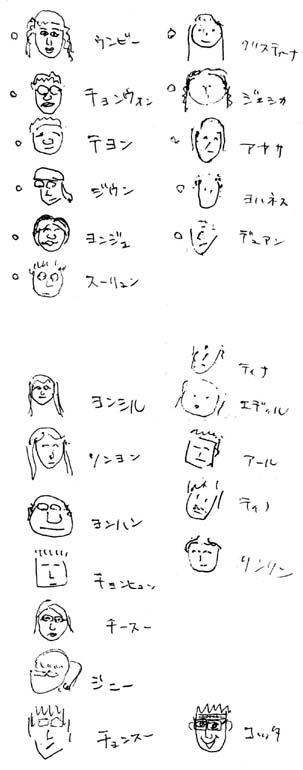 ウンビー
チョンウォン
テヨン
ジウン
ヨンジュ
スーリュン
クリスティーナ
ジェシカ
アヤサ
ヨハネス
デュアン
ヨンシル
ソンヨン
ヨンハン
チョンヒュン
チースー
ジニー
チュンスー
ティナ
エディル
アール
ティノ
リンリン
コッタ